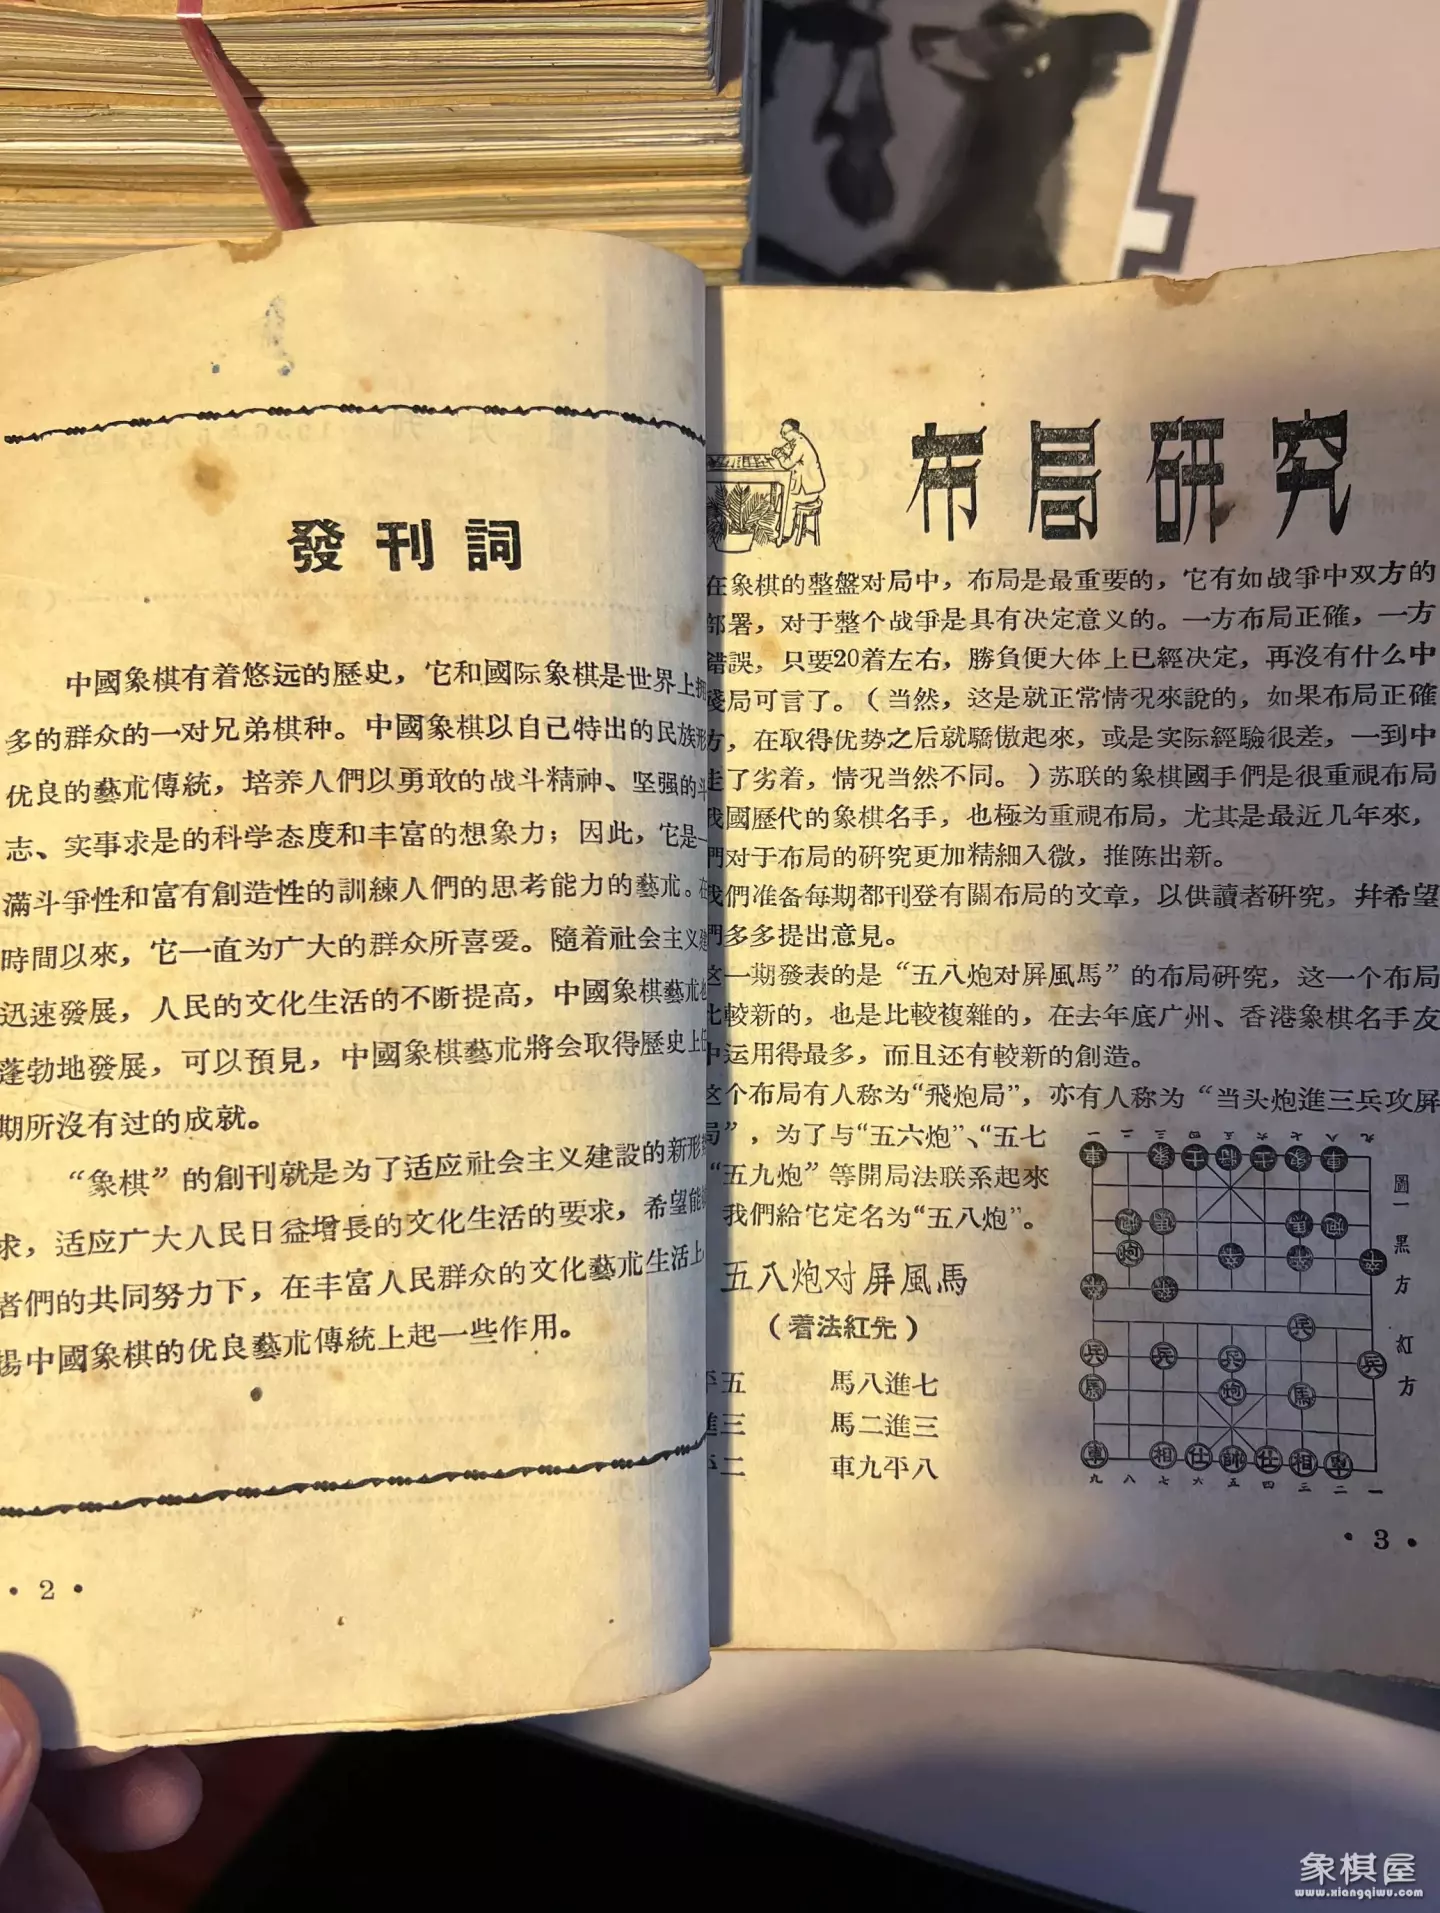 發刊詞
中國象棋有着悠远的歷史，它和國际象棋是世界上
多的群众的一对兄弟棋种。中國象棋以自己特出的民族形
优良的藝朮傳統，培养人們以勇敢的战斗精神、坚强的斗
志、实事求是的科学态度和丰富的想象力；因此，它是一
滿斗爭性和富有創造性的訓練人們的思考能力的藝朮。在
時間以來，它一直为广大的群众所喜爱。隨着社会主义建
迅速發展，人民的文化生活的不断提高，中國象棋藝朮也
蓬勃地發展，可以預見，中國象棋藝朮將会取得歷史上
期所沒有过的成就。
“象棋”的創刊就是为了适应社会主义建設的新形
求，适应广大人民日益增長的文化生活的要求，希望能
者們的共同努力下，在丰富人民群众的文化藝朮生活上
揚中國象棋的优良藝朮傳統上起一些作用。
• 2 •
布局研究
在象棋的整盤对局中，布局是最重要的，它有如战爭中双方的
部署，对于整个战爭是具有决定意义的。一方布局正確，一方
錯誤，只要20着左右，勝負便大体上已經决定，再沒有什么中
殘局可言了。（当然，这是就正常情况來說的，如果布局正確
方，在取得优势之后就驕傲起來，或是实际經驗很差，一到中
走了劣着，情况当然不同。）苏联的象棋國手們是很重視布局
我國歷代的象棋名手，也極为重視布局，尤其是最近几年來，
們对于布局的研究更加精細入微，推陈出新。
我們准备每期都刊登有關布局的文章，以供讀者研究，幷希望
們多多提出意見。
这一期發表的是“五八炮对屏風馬”的布局研究，这一个布局
比較新的，也是比較複雜的，在去年底广州、香港象棋名手友
中运用得最多，而且还有較新的創造。
这个布局有人称为“飛炮局”，亦有人称为“当头炮進三兵攻屏
局”，为了与“五六炮”、“五七
“五九炮”等開局法联系起來
我們給它定名为“五八炮”。
五八炮对屏風馬
（着法紅先）
平五 馬八進七
進三 馬二進三
平二 車九平八
一 二 三 四 五 六 七 八 九
車 象 士 将 士 象 車
炮 馬 馬 炮
炮 卒 卒 卒
卒 卒
兵
兵 兵 兵 兵
馬 炮 馬
車 相 仕 帥 仕 相 車
九 八 七 六 五 四 三 二 一
圖一 黑方 紅方
• 3 •
象棋屋
www.xiangqiwu.com